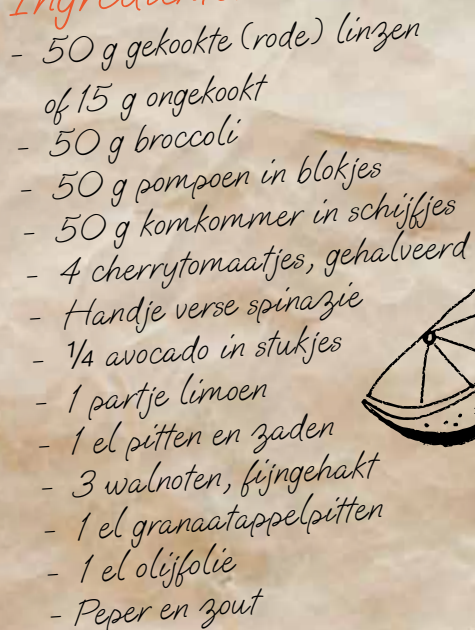 Ingrediënten
- 50 g gekookte (rode) linzen
of 15 g ongekookt
- 50 g broccoli
- 50 g pompoen in blokjes
- 50 g komkommer in schijfjes
- 4 cherrytomaatjes, gehalveerd
- Handje verse spinazie
- ¼ avocado in stukjes
- 1 partje limoen
- 1 el pitten en zaden
- 3 walnoten, fijngehakt
- 1 el granaatappelpitten
- 1 el olijfolie
- Peper en zout